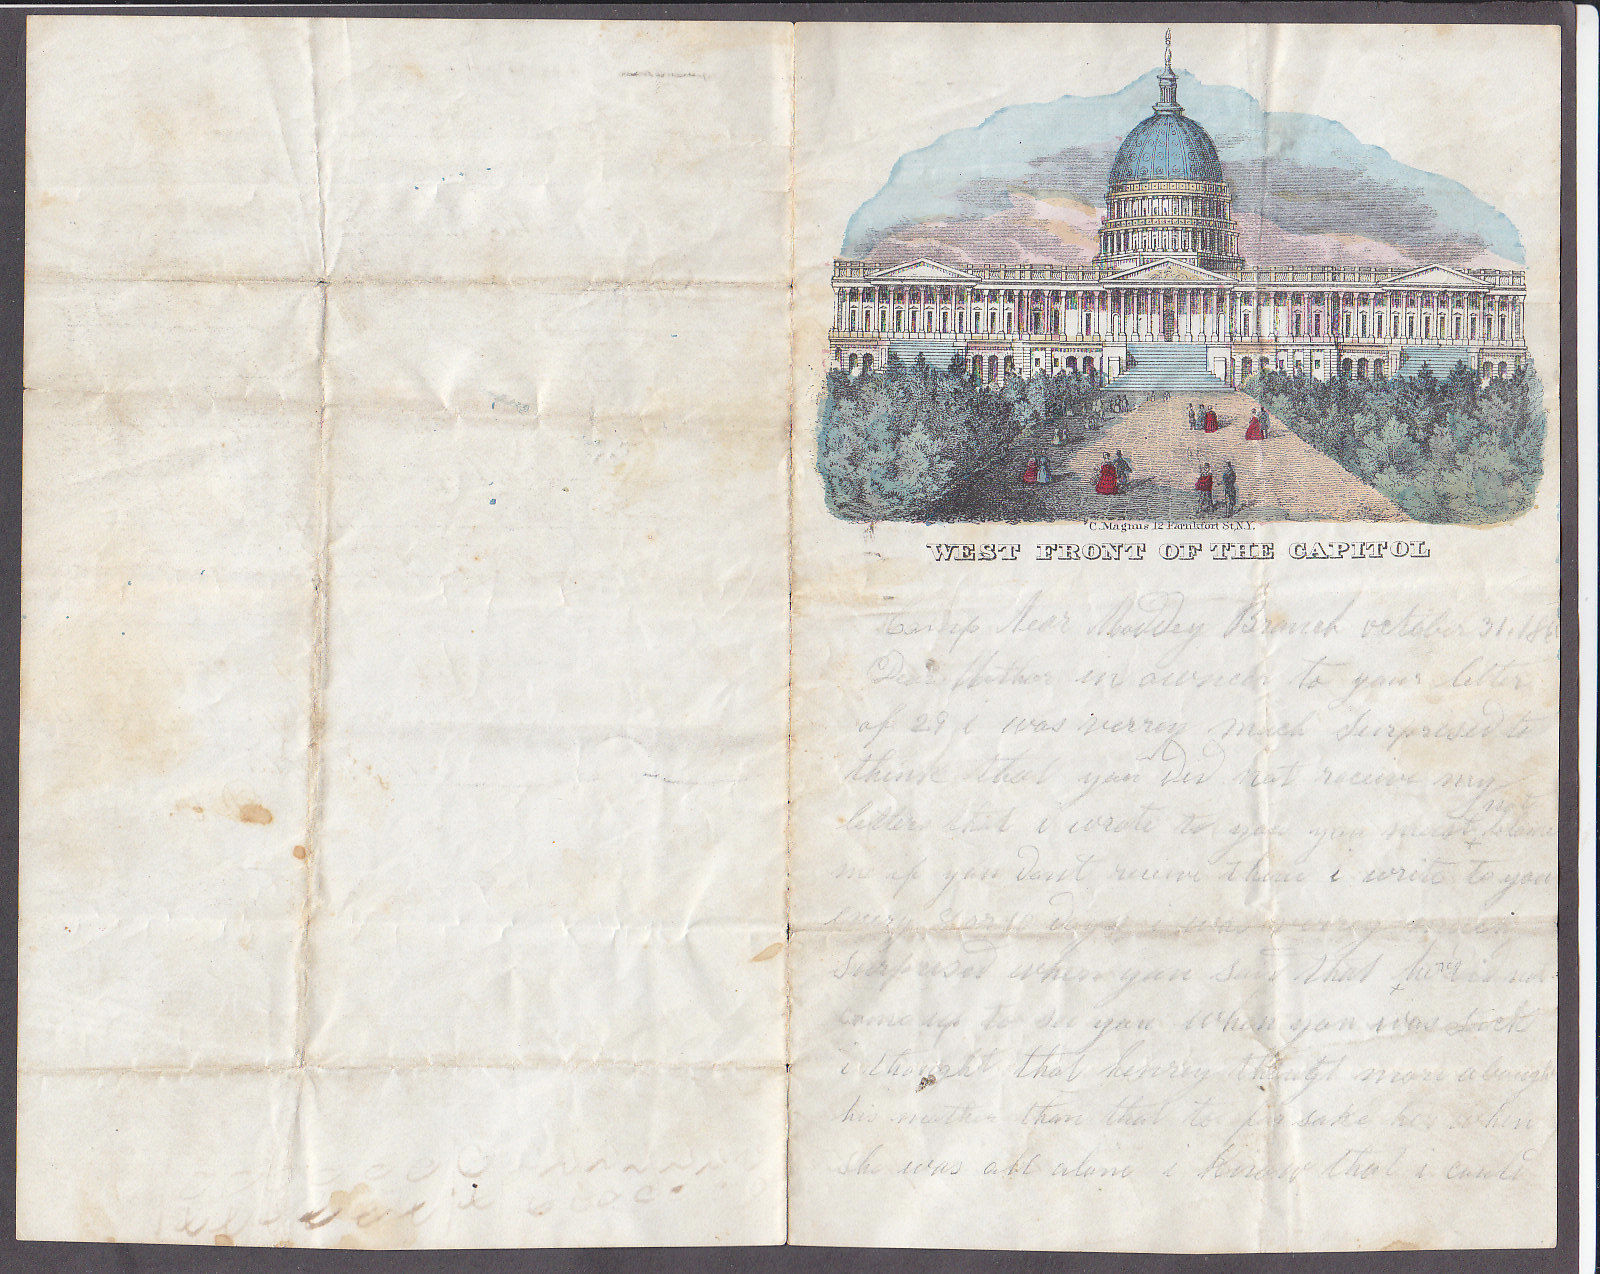 C. Magnus 12 Farnkfort St, N.Y.
WEST FRONT OF THE CAPITOL
Camp Near Moddey Branch october 31. 186
Dear Mother in awncer to your letter
of 29 i was verrey much surprised to
think that you did not receive my
letters that i wrote to you you must not blame
me if you dont receive them i write to you
every days i was verrey much
surprised when you said that henry did not
come up to see you when you was sick
i thought that henrey thought more abought
his mother than that to forsake her when
she was all alone i know that i could